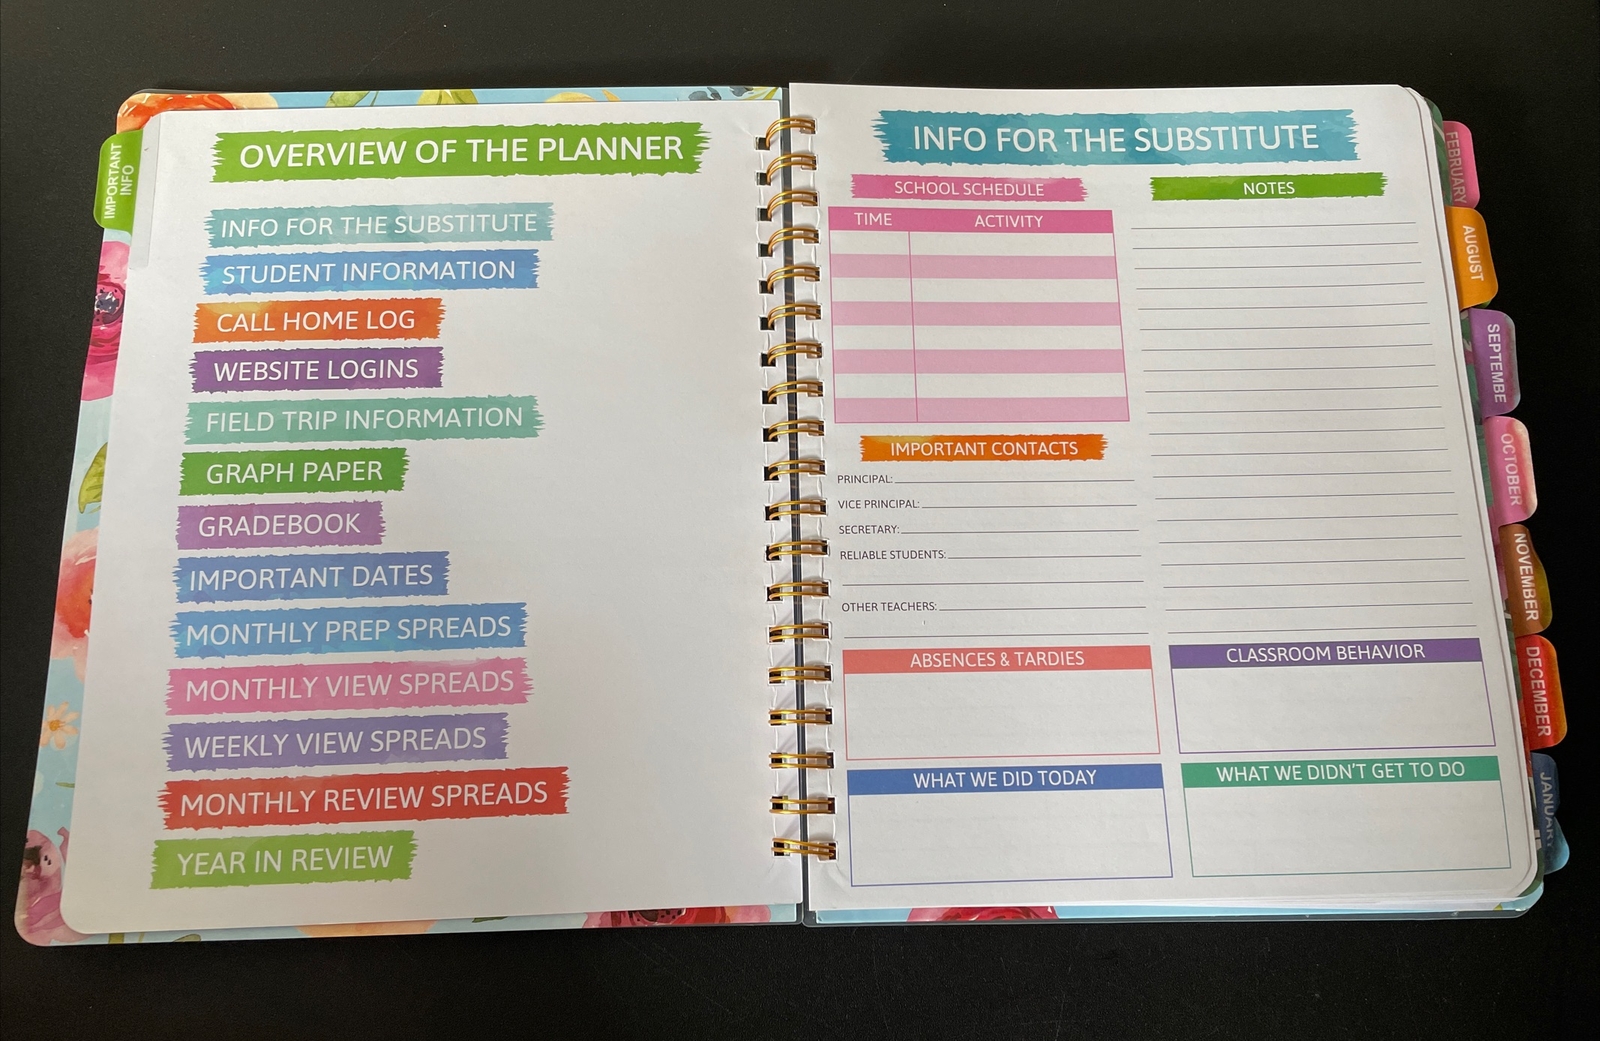 IMPORTANT
INFO
OVERVIEW OF THE PLANNER
INFO FOR THE SUBSTITUTE
STUDENT INFORMATION
CALL HOME LOG
WEBSITE LOGINS
FIELD TRIP INFORMATION
GRAPH PAPER
GRADEBOOK
IMPORTANT DATES
MONTHLY PREP SPREADS
MONTHLY VIEW SPREADS
WEEKLY VIEW SPREADS
MONTHLY REVIEW SPREADS
YEAR IN REVIEW
INFO FOR THE SUBSTITUTE
SCHOOL SCHEDULE
TIME ACTIVITY
IMPORTANT CONTACTS
PRINCIPAL:
VICE PRINCIPAL:
SECRETARY:
RELIABLE STUDENTS:
OTHER TEACHERS:
NOTES
ABSENCES & TARDIES
CLASSROOM BEHAVIOR
WHAT WE DID TODAY
WHAT WE DIDN'T GET TO DO
FEBRUARY
AUGUST
SEPTEMBE
OCTOBER
NOVEMBER
DECEMBER
JANUARY